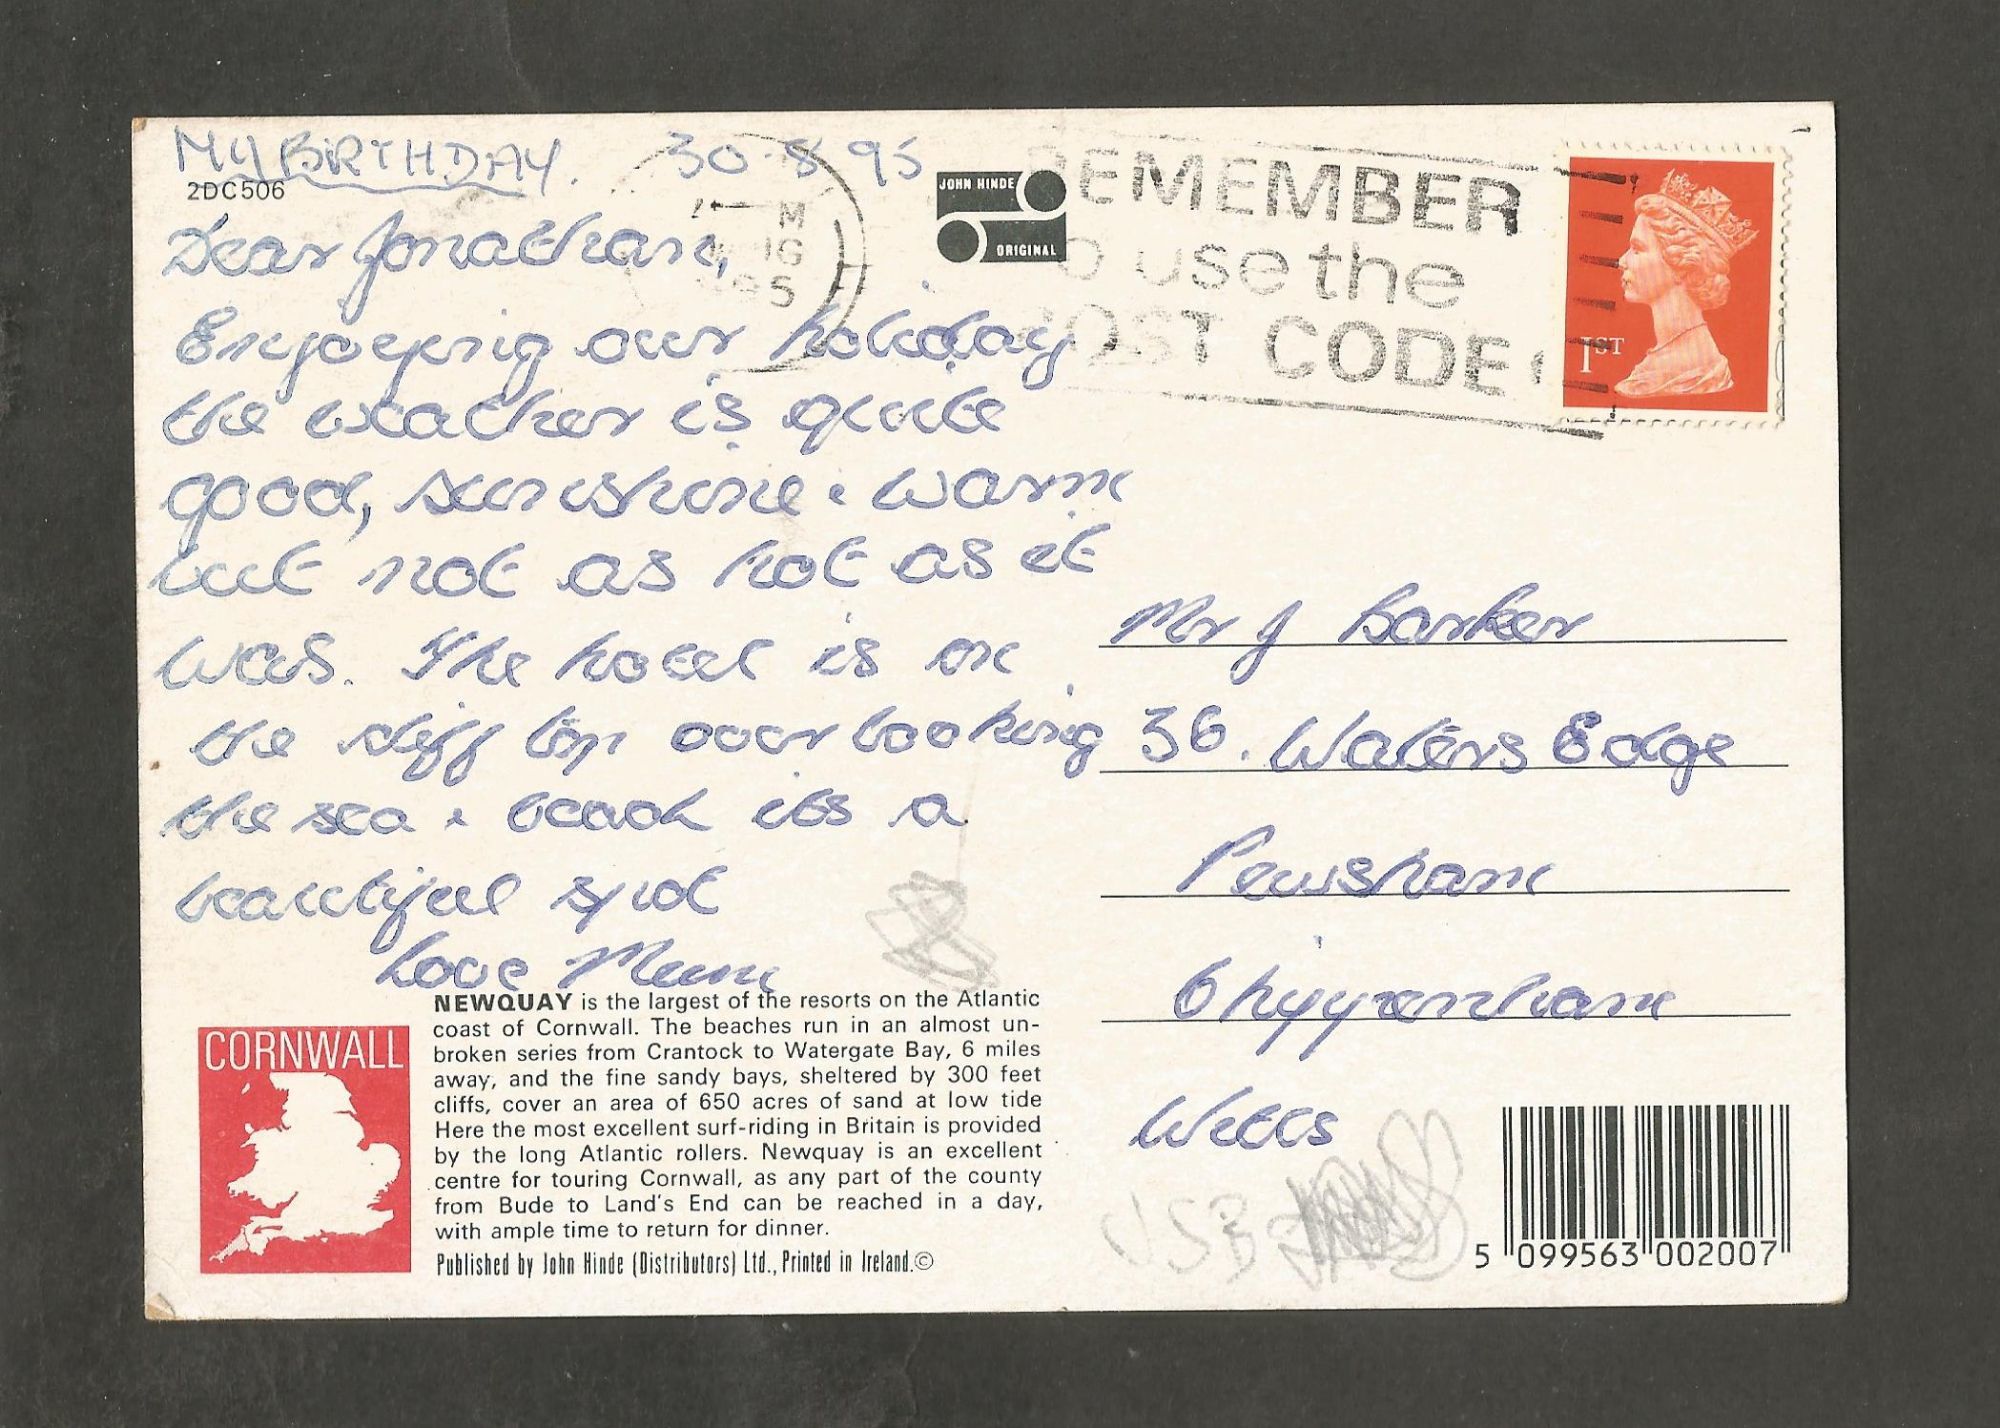 MY BIRTHDAY. 30-8 95
2DC506
Dear Jonathan,
Enjoying our holiday
the weather is quite
good, sunshine & warm
but not as hot as it
was. The hotel is on
the cliff top overlooking
the sea & beach its a
beautiful spot
Love Mum
JOHN HINDE
ORIGINAL
REMEMBER
to use the
POST CODE
1ST
Mr J Barker
36. Waters Edge
Pewsham
Chippenham
Wilts
CORNWALL
NEWQUAY is the largest of the resorts on the Atlantic
coast of Cornwall. The beaches run in an almost un-
broken series from Crantock to Watergate Bay, 6 miles
away, and the fine sandy bays, sheltered by 300 feet
cliffs, cover an area of 650 acres of sand at low tide
Here the most excellent surf-riding in Britain is provided
by the long Atlantic rollers. Newquay is an excellent
centre for touring Cornwall, as any part of the county
from Bude to Land's End can be reached in a day,
with ample time to return for dinner.
Published by John Hinde (Distributors) Ltd., Printed in Ireland.©
5 099563 002007